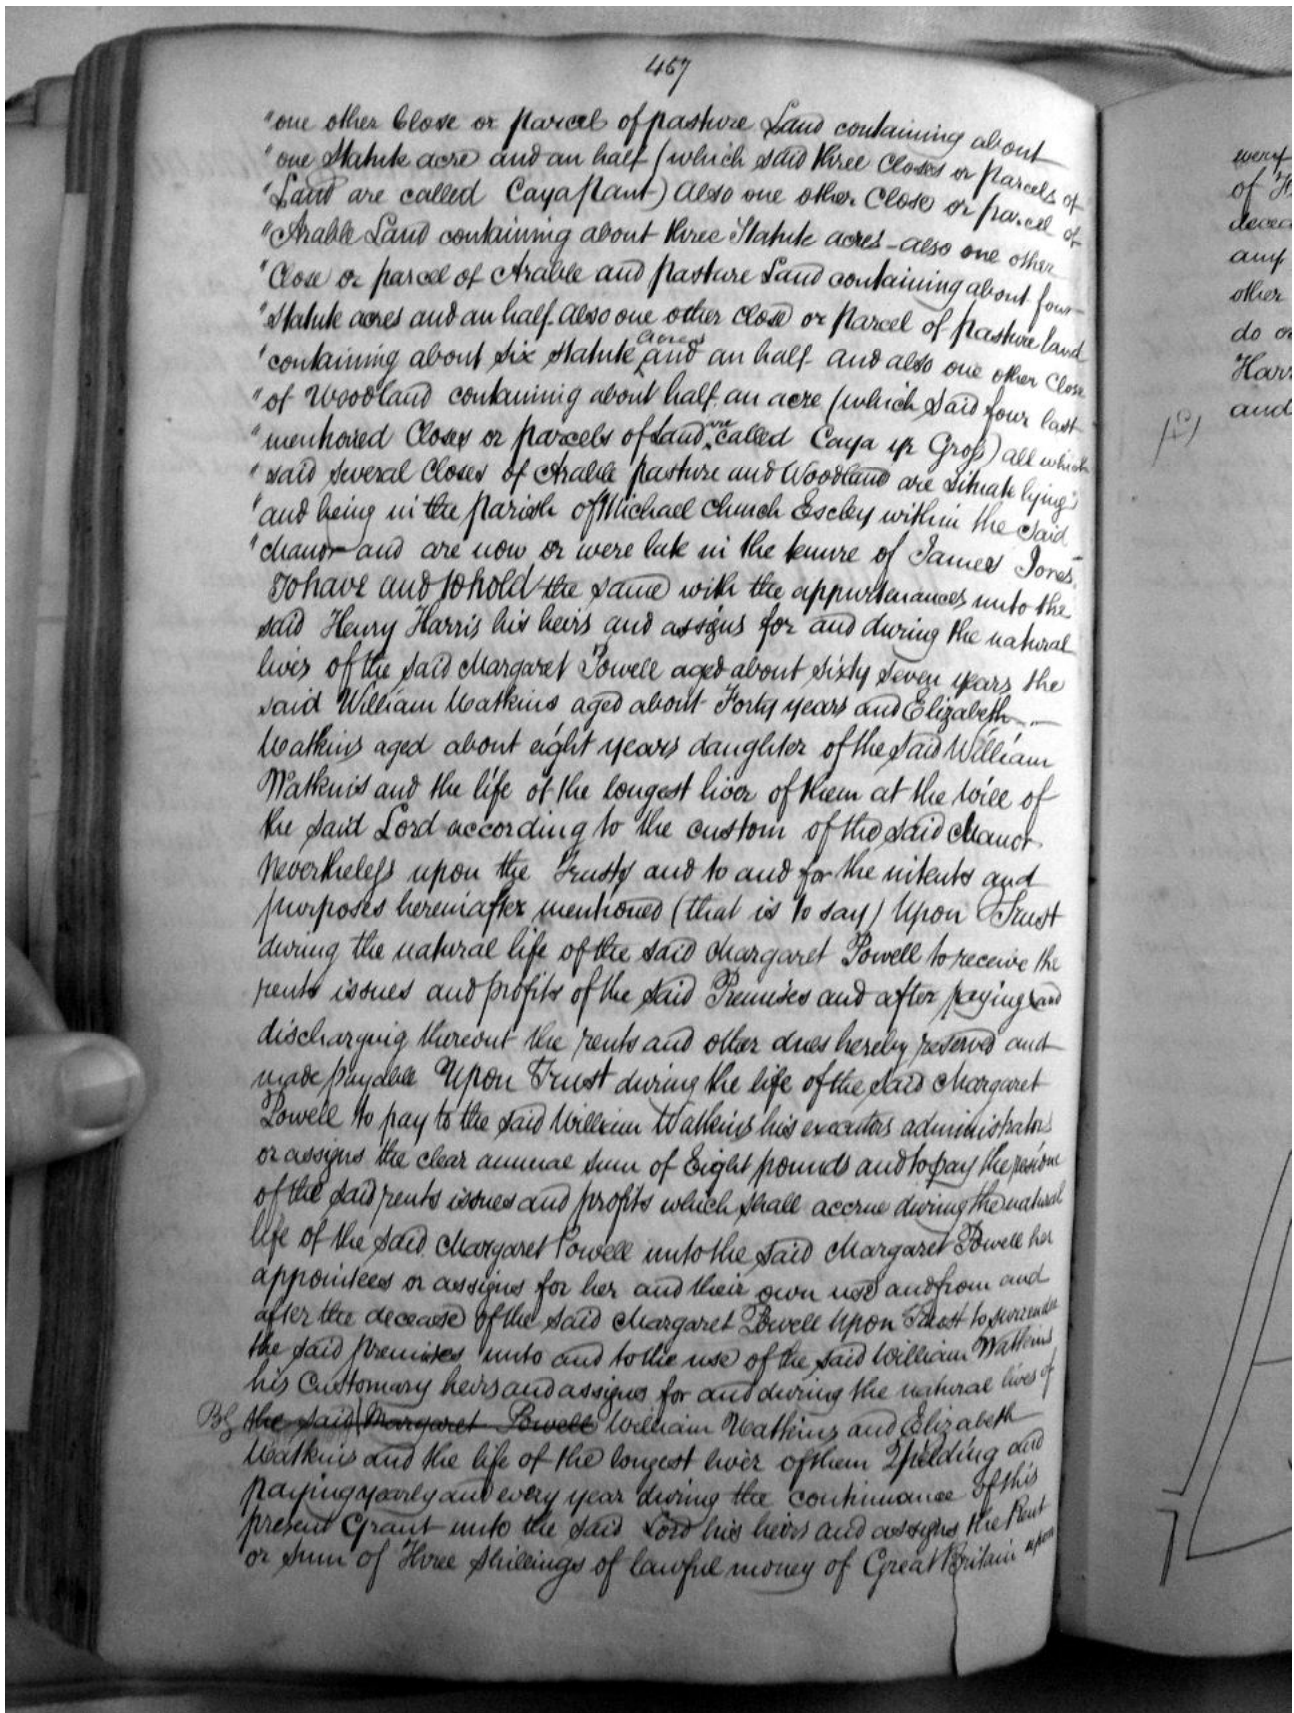 467
"one other Close or parcel of pasture Land containing about
"one Statute acre and an half (which said three Closes or Parcels of
"Land are called Cayaplant) Also one other Close or parcel of
"Arable Land containing about three Statute acres - also one other
"Close or parcel of Arable and pasture Land containing about four
"Statute acres and an half - also one other close or parcel of pasture land
"containing about six statute acres and an half and also one other Close
"of Woodland containing about half an acre (which said four last
"mentioned Closes or parcels of Land are called Caya yr Groes) all which
"said several Closes of Arable pasture and Woodland are situate lying
"and being in the parish of Michael church Escley within the said
"Manor and are now or were late in the tenure of James Jones.
To have and to hold the same with the appurtenances unto the
said Henry Harris his heirs and assigns for and during the natural
lives of the said Margaret Powell aged about sixty seven years the
said William Watkins aged about Forty years and Elizabeth
Watkins aged about eight years daughter of the said William
Watkins and the life of the longest liver of them at the will of
the said Lord according to the custom of the said Manor
Nevertheless upon the Trusts and to and for the intents and
purposes hereinafter mentioned (that is to say) Upon Trust
during the natural life of the said Margaret Powell to receive the
rents issues and profits of the said Premises and after paying and
discharging thereout the rents and other dues hereby reserved and
made payable Upon Trust during the life of the said Margaret
Powell to pay to the said William Watkins his executors administrators
or assigns the clear annual sum of Eight pounds and to pay the residue
of the said rents issues and profits which shall accrue during the natural
life of the said Margaret Powell unto the said Margaret Powell her
appointees or assigns for her and their own use and from and
after the decease of the said Margaret Powell Upon Trust to surrender
the said premises unto and to the use of the said William Watkins
his customary heirs and assigns for and during the natural lives of
the said Margaret Powell William Watkins and Elizabeth
Watkins and the life of the longest liver of them Yielding and
paying yearly and every year during the continuance of this
present Grant unto the said Lord his heirs and assigns the Rent
or sum of Three Shillings of lawful money of Great Britain upon
every
of
any
other
do
and